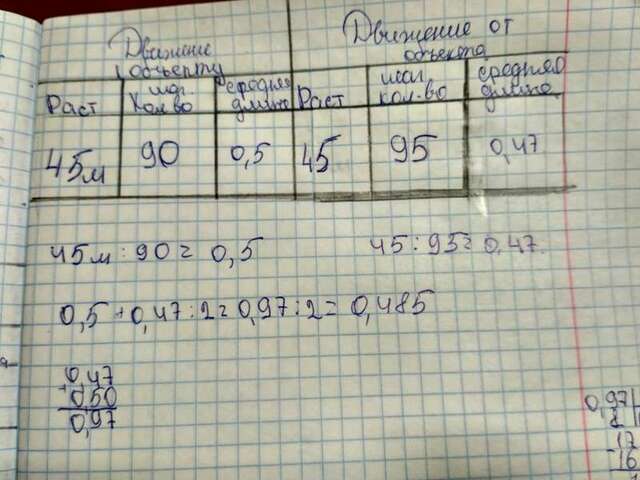 Движение
объекту
Движение от
объекта
Раст
шаг.
кол.во
средняя
длина
Раст
шаг.
кол.во
средняя
длина
45м
90
0,5
45
95
0,47
45м : 90 = 0,5
45 : 95 = 0,47
0,5 + 0,47 : 2 = 0,97 : 2 = 0,485
0,47
+
0,50
0,97
0,97
8
-17
16